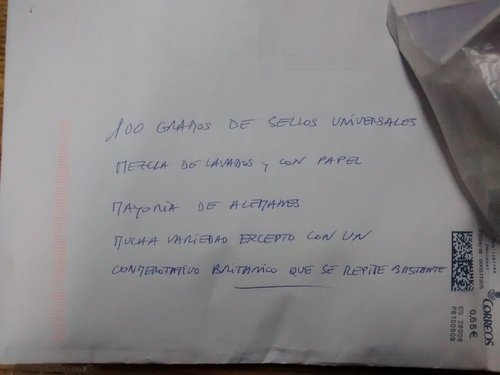 100 GRAMOS DE SELLOS UNIVERSALES
MEZCLA DE LAVADOS y CON PAPEL
MAYORIA DE ALEMANES
MUCHA VARIEDAD EXCEPTO CON UN
CONMEMORATIVO BRITANICO QUE SE REPITE BASTANTE
CORREOS
0,68€
ES 28008